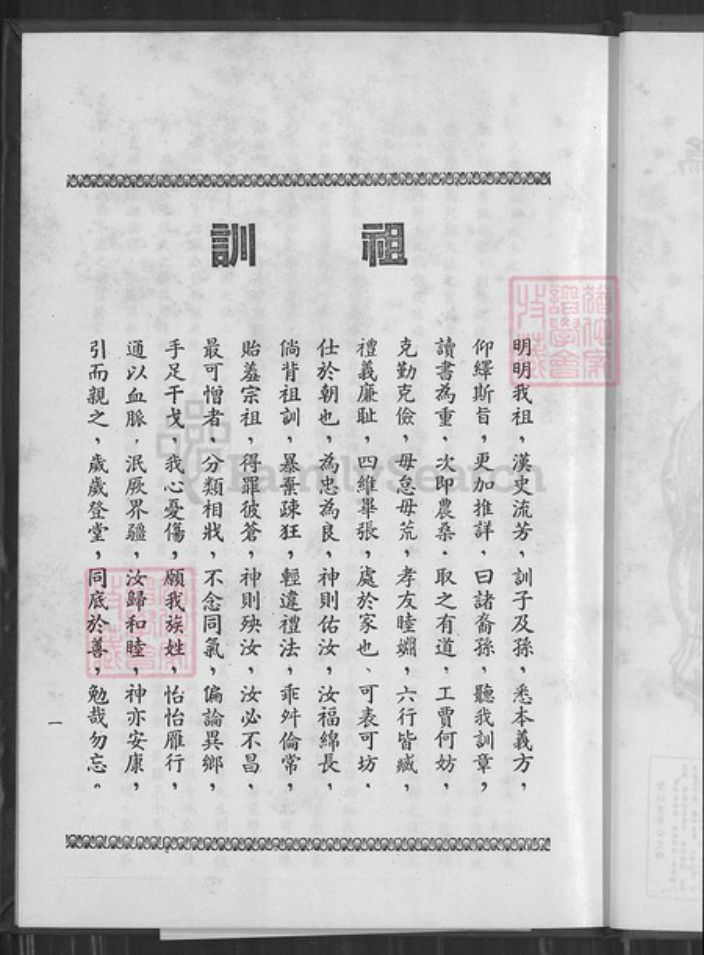 祖訓
明明我祖，漢史流芳，訓子及孫，悉本義方，
仰繹斯旨，更加推詳，曰諸裔孫，聽我訓章，
讀書為重，次即農桑．取之有道，工賈何妨，
克勤克儉，毋怠毋荒，孝友睦婣，六行皆臧，
禮義廉耻，四維畢張，處於家也、可表可坊．
仕於朝也，為忠為良，神則佑汝，汝福綿長，
倘背祖訓，暴棄疎狂，輕違禮法，乖舛倫常，
貽羞宗祖，得罪彼蒼，神則殃汝，汝必不昌，
最可憎者，分類相戕，不念同氣，偏論異鄉，
手足干戈，我心憂傷，願我族姓，怡怡雁行，
通以血脈，泯厥界疆，汝歸和睦，神亦安康，
引而親之，歲歲登堂，同底於善，勉哉勿忘。
一
FamilySearch